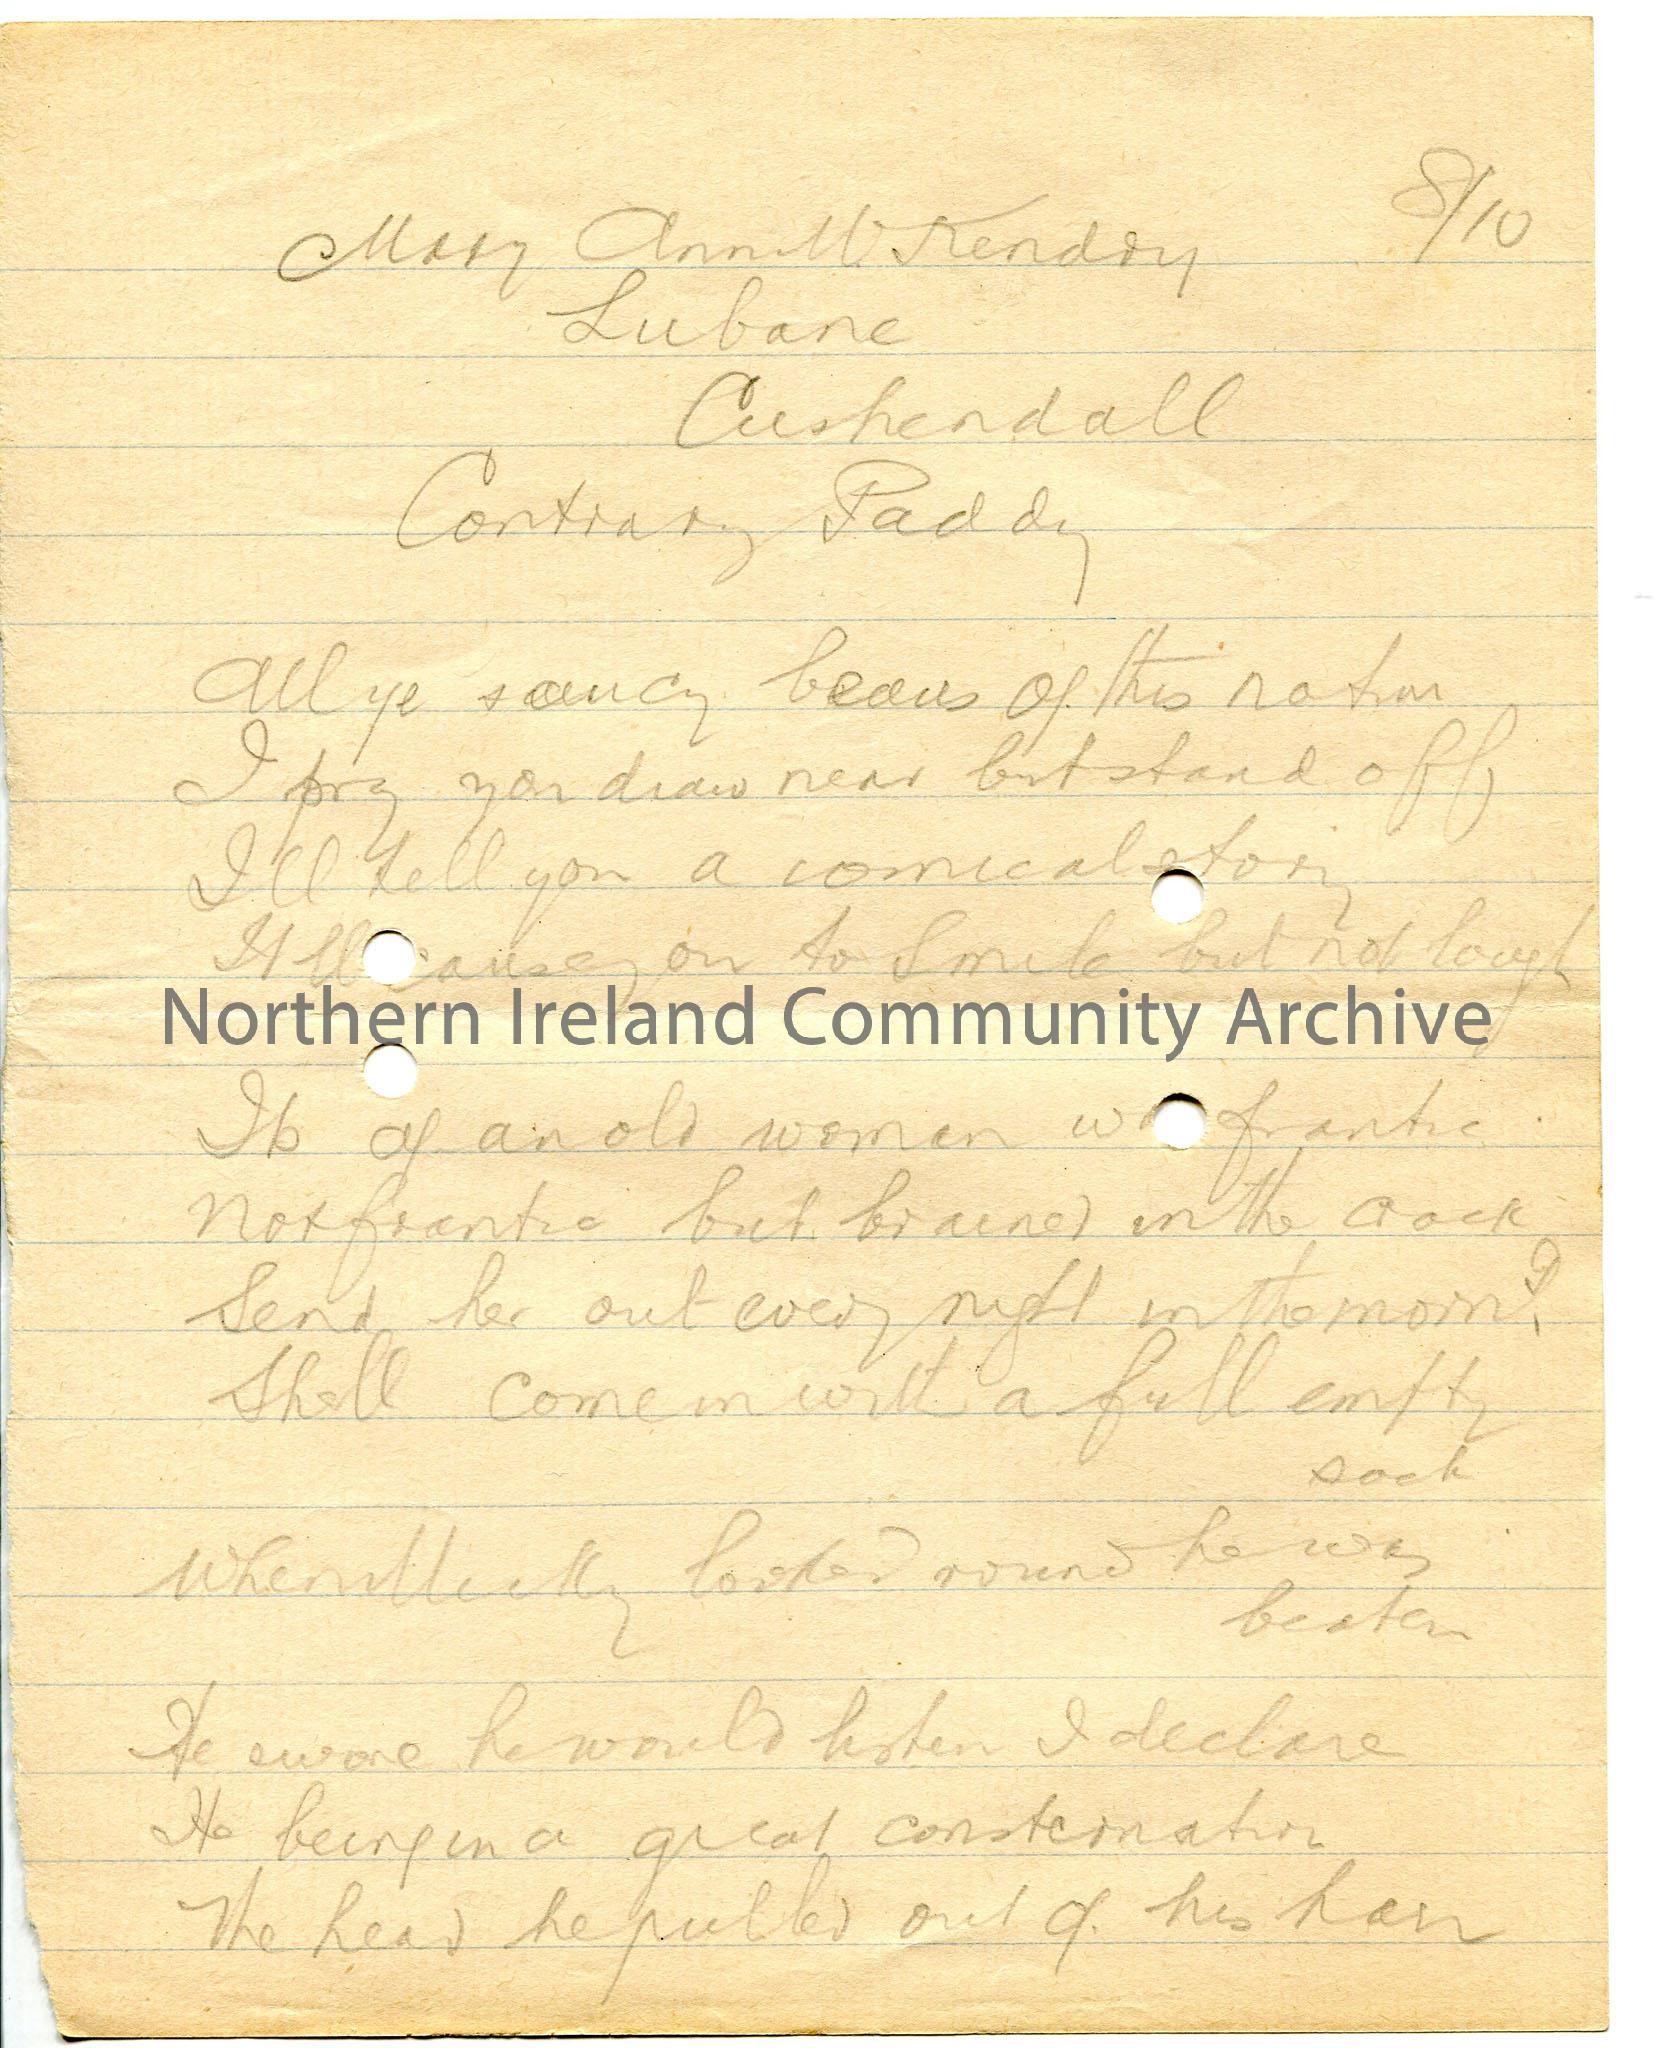 8/10
Mary Ann McKendry
Lubane
Cushendall
Contrary Paddy
All ye saucy beaus of this nation
I pray you draw near but stand off
I'll tell you a comical story
It'll cause you to smile but not laugh
Northern Ireland Community Archive
Its of an old woman frantic
Not frantic but brained in the crack
Send her out every night in the morn
Shell come in with a full empty
sack
When looked round he was
beaten
He swore he would listen I declare
He being in a great consternation
The head he pulled out of his hair